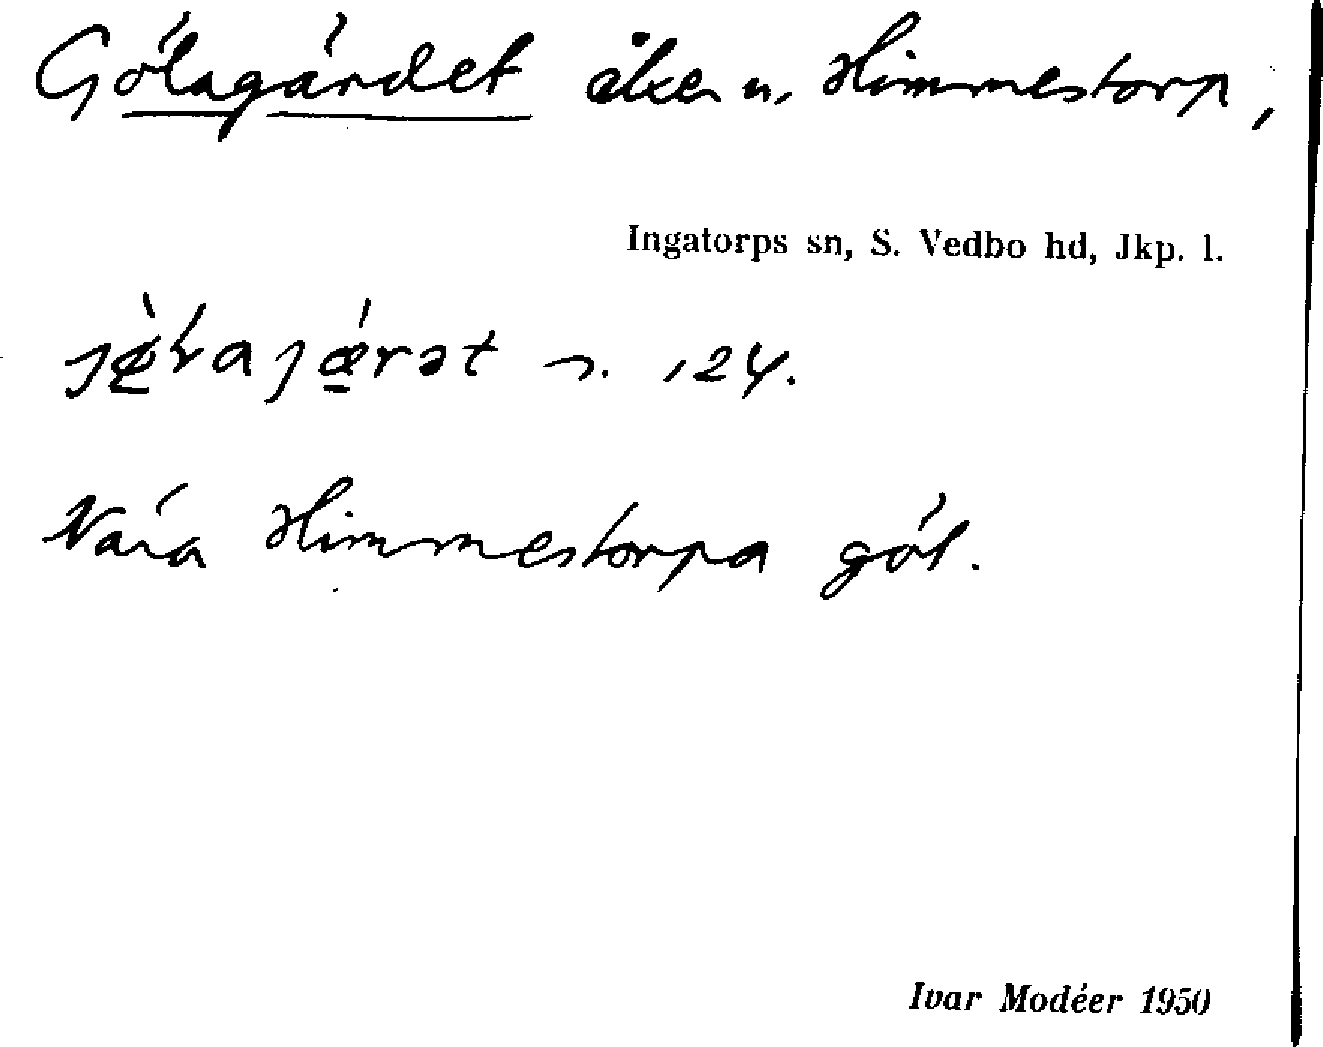 Gölagärdet åker u. Himmestorp,
Ingatorps sn, S. Vedbo hd, Jkp. l.
s. 124.
Nära Himmestorpa göl.
Ivar Modéer 1950